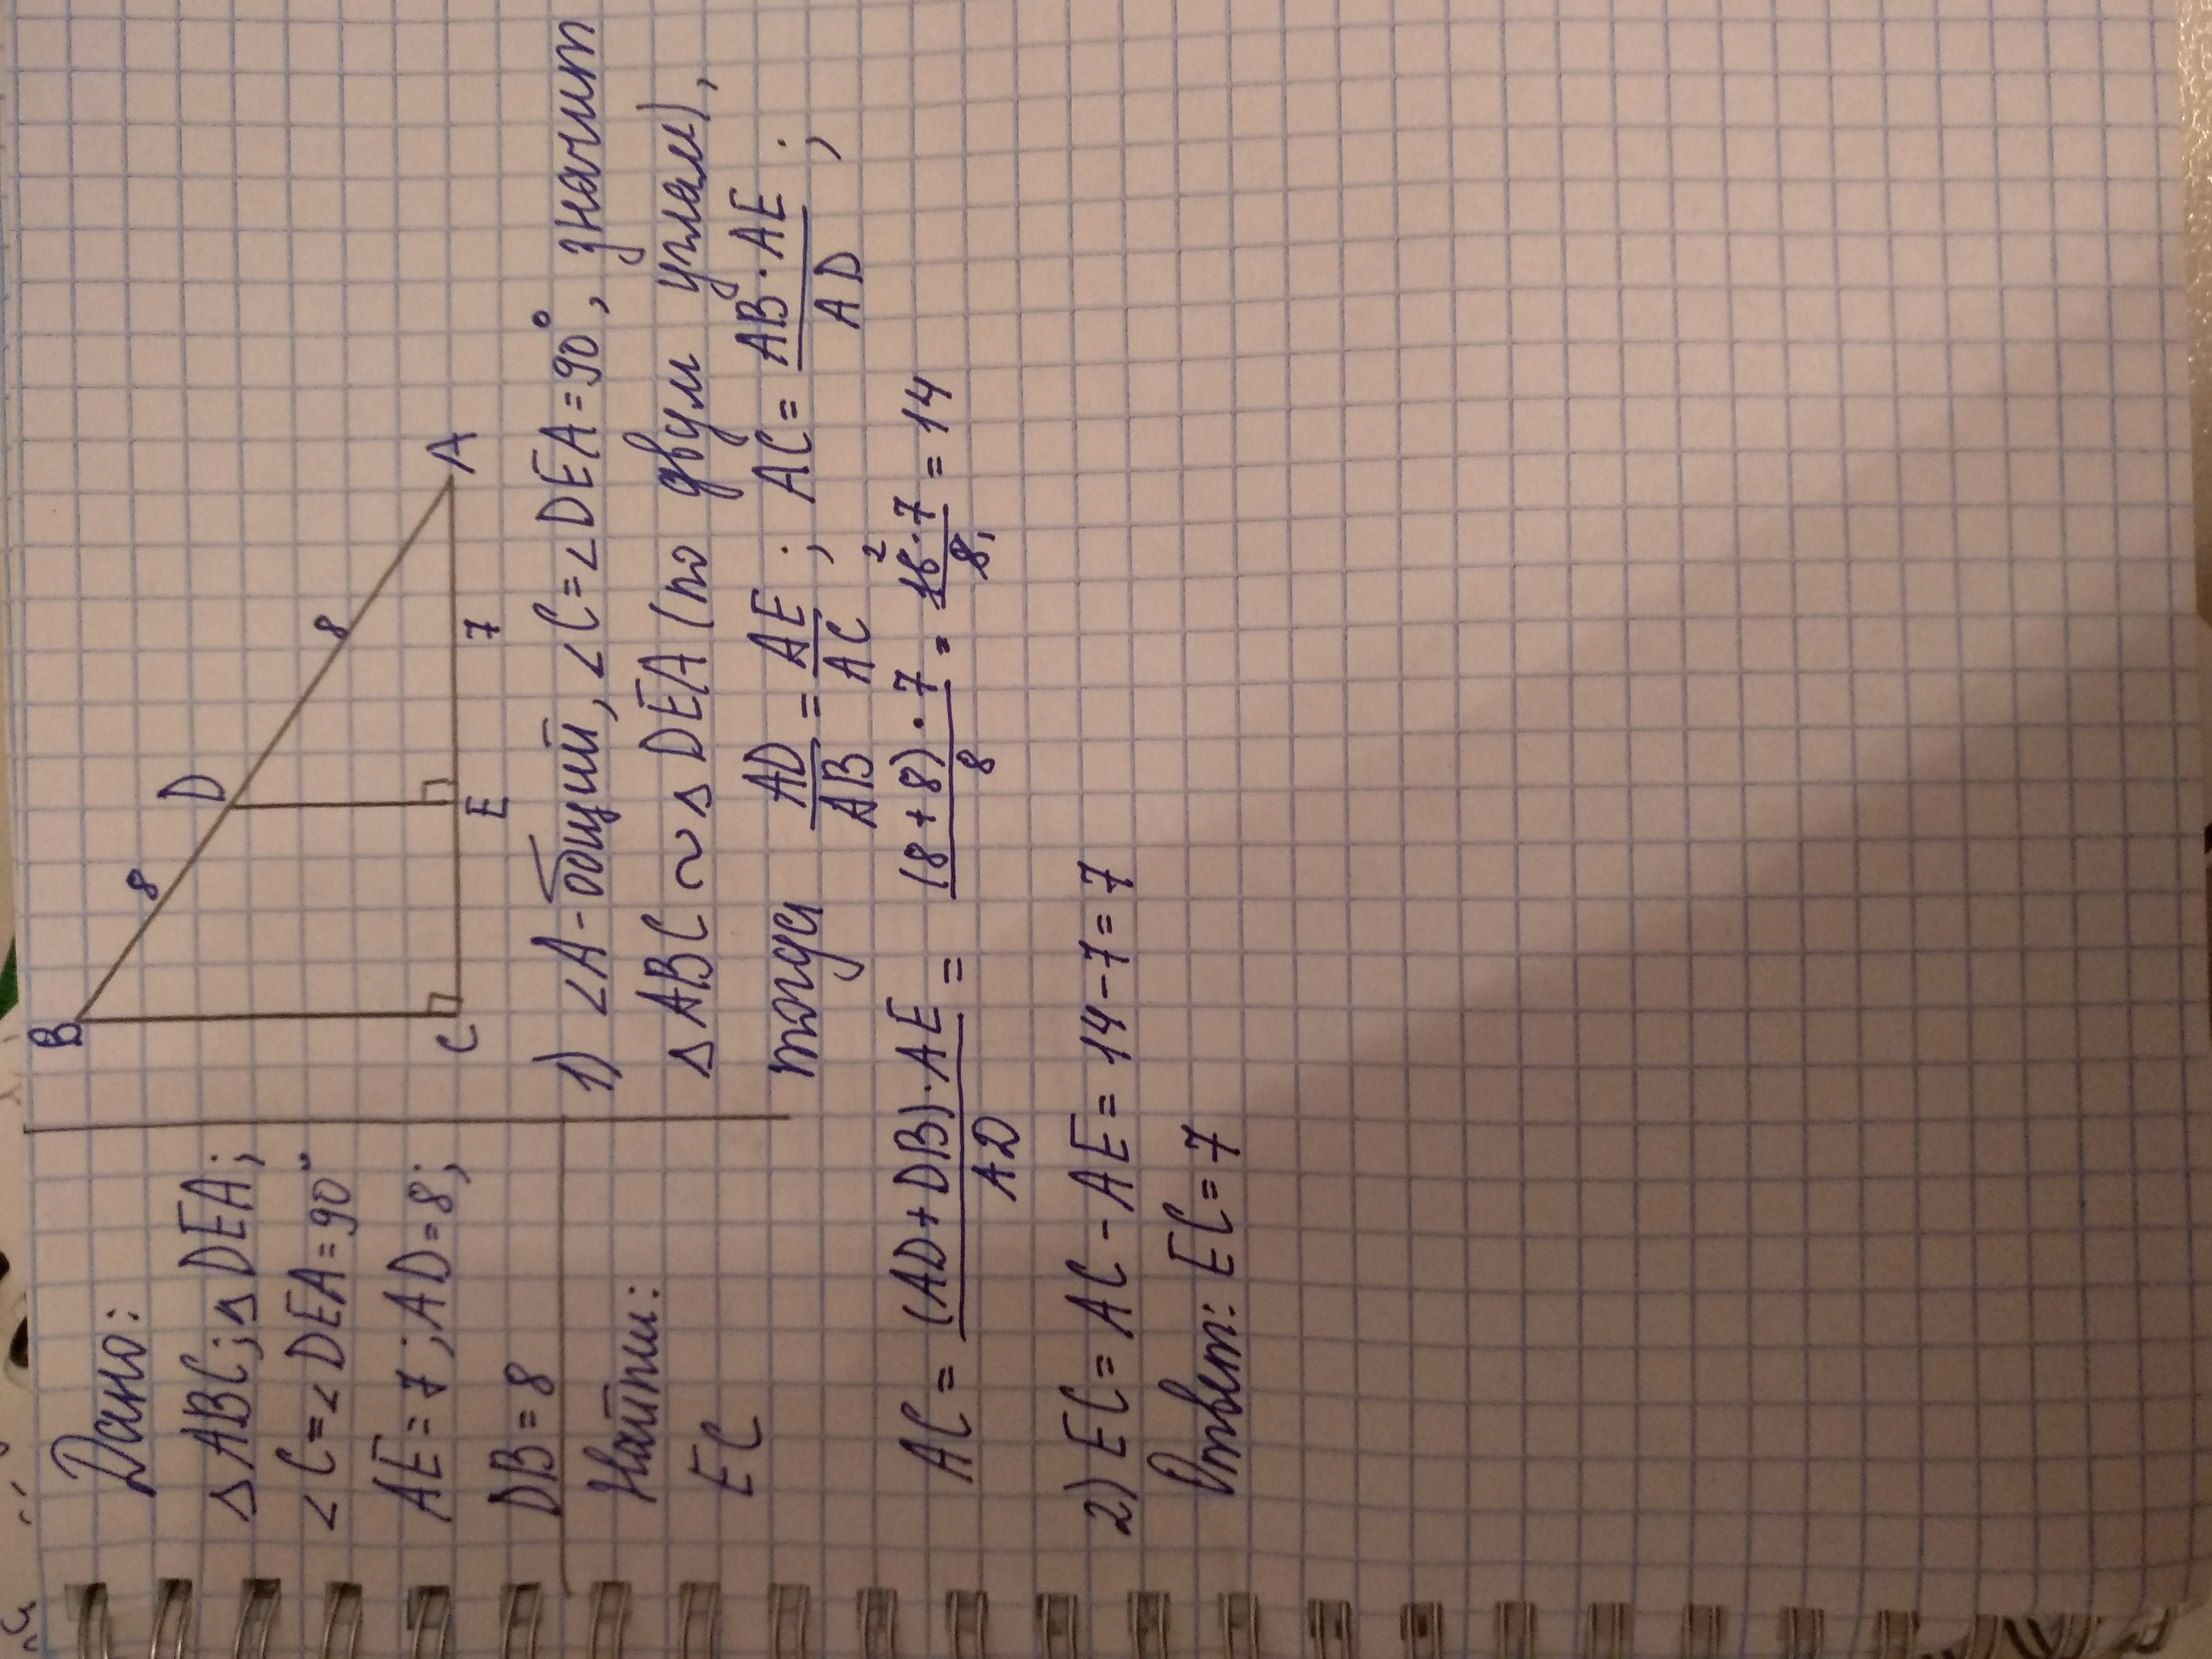 Дано:
△ABC; △DEA;
∠C=∠DEA=90°
AE=7; AD=8;
DB=8
Найти:
EC
B
8
D
8
A
C
E
7
1) ∠A-общий, ∠C=∠DEA=90°, значит
△ABC ~ △DEA (по двум углам),
тогда AD/AB = AE/AC ; AC = AB·AE/AD ;
AC = (AD+DB)·AE/AD = (8+8)·7/8 = 16²·7/8₁ = 14
2) EC = AC - AE = 14-7=7
Ответ: EC=7